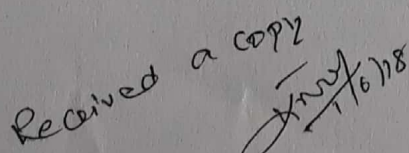 Received a copy
1/6/18